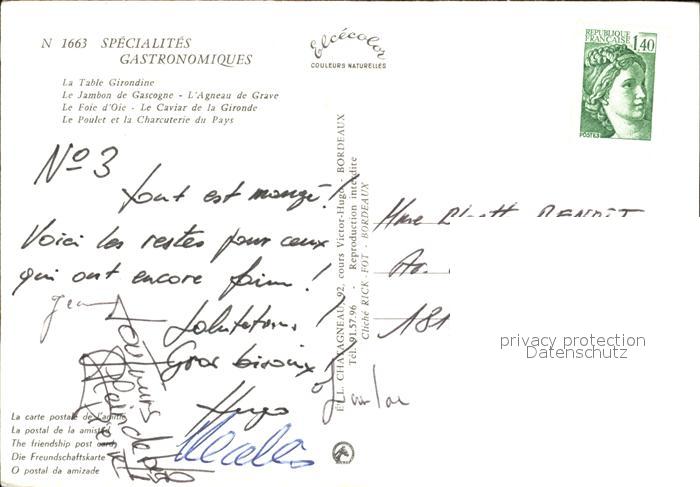 N 1663 SPÉCIALITÉS
GASTRONOMIQUES
La Table Girondine
Le Jambon de Gascogne - L'Agneau de Grave
Le Foie d'Oie - Le Caviar de la Gironde
Le Poulet et la Charcuterie du Pays
Elcécolor
COULEURS NATURELLES
REPUBLIQUE
FRANÇAISE
1,40
POSTES
Nº 3
Tout est mangé !
Voici les restes pour ceux
qui ont encore faim !
Salutations !
Gros bisoux !
Hugo
Nicolas
Toujours
plein de
ÉLL. CHATAGNEAU, 92, cours Victor-Hugo - BORDEAUX
Tél. 91.57.96 - Reproduction interdite
Cliché RICK-FOT - BORDEAUX
Mme
Av.
181
privacy protection
Datenschutz
La carte postale de l'amitié
La postal de la amistad
The friendship post card
Die Freundschaftskarte
O postal da amizade